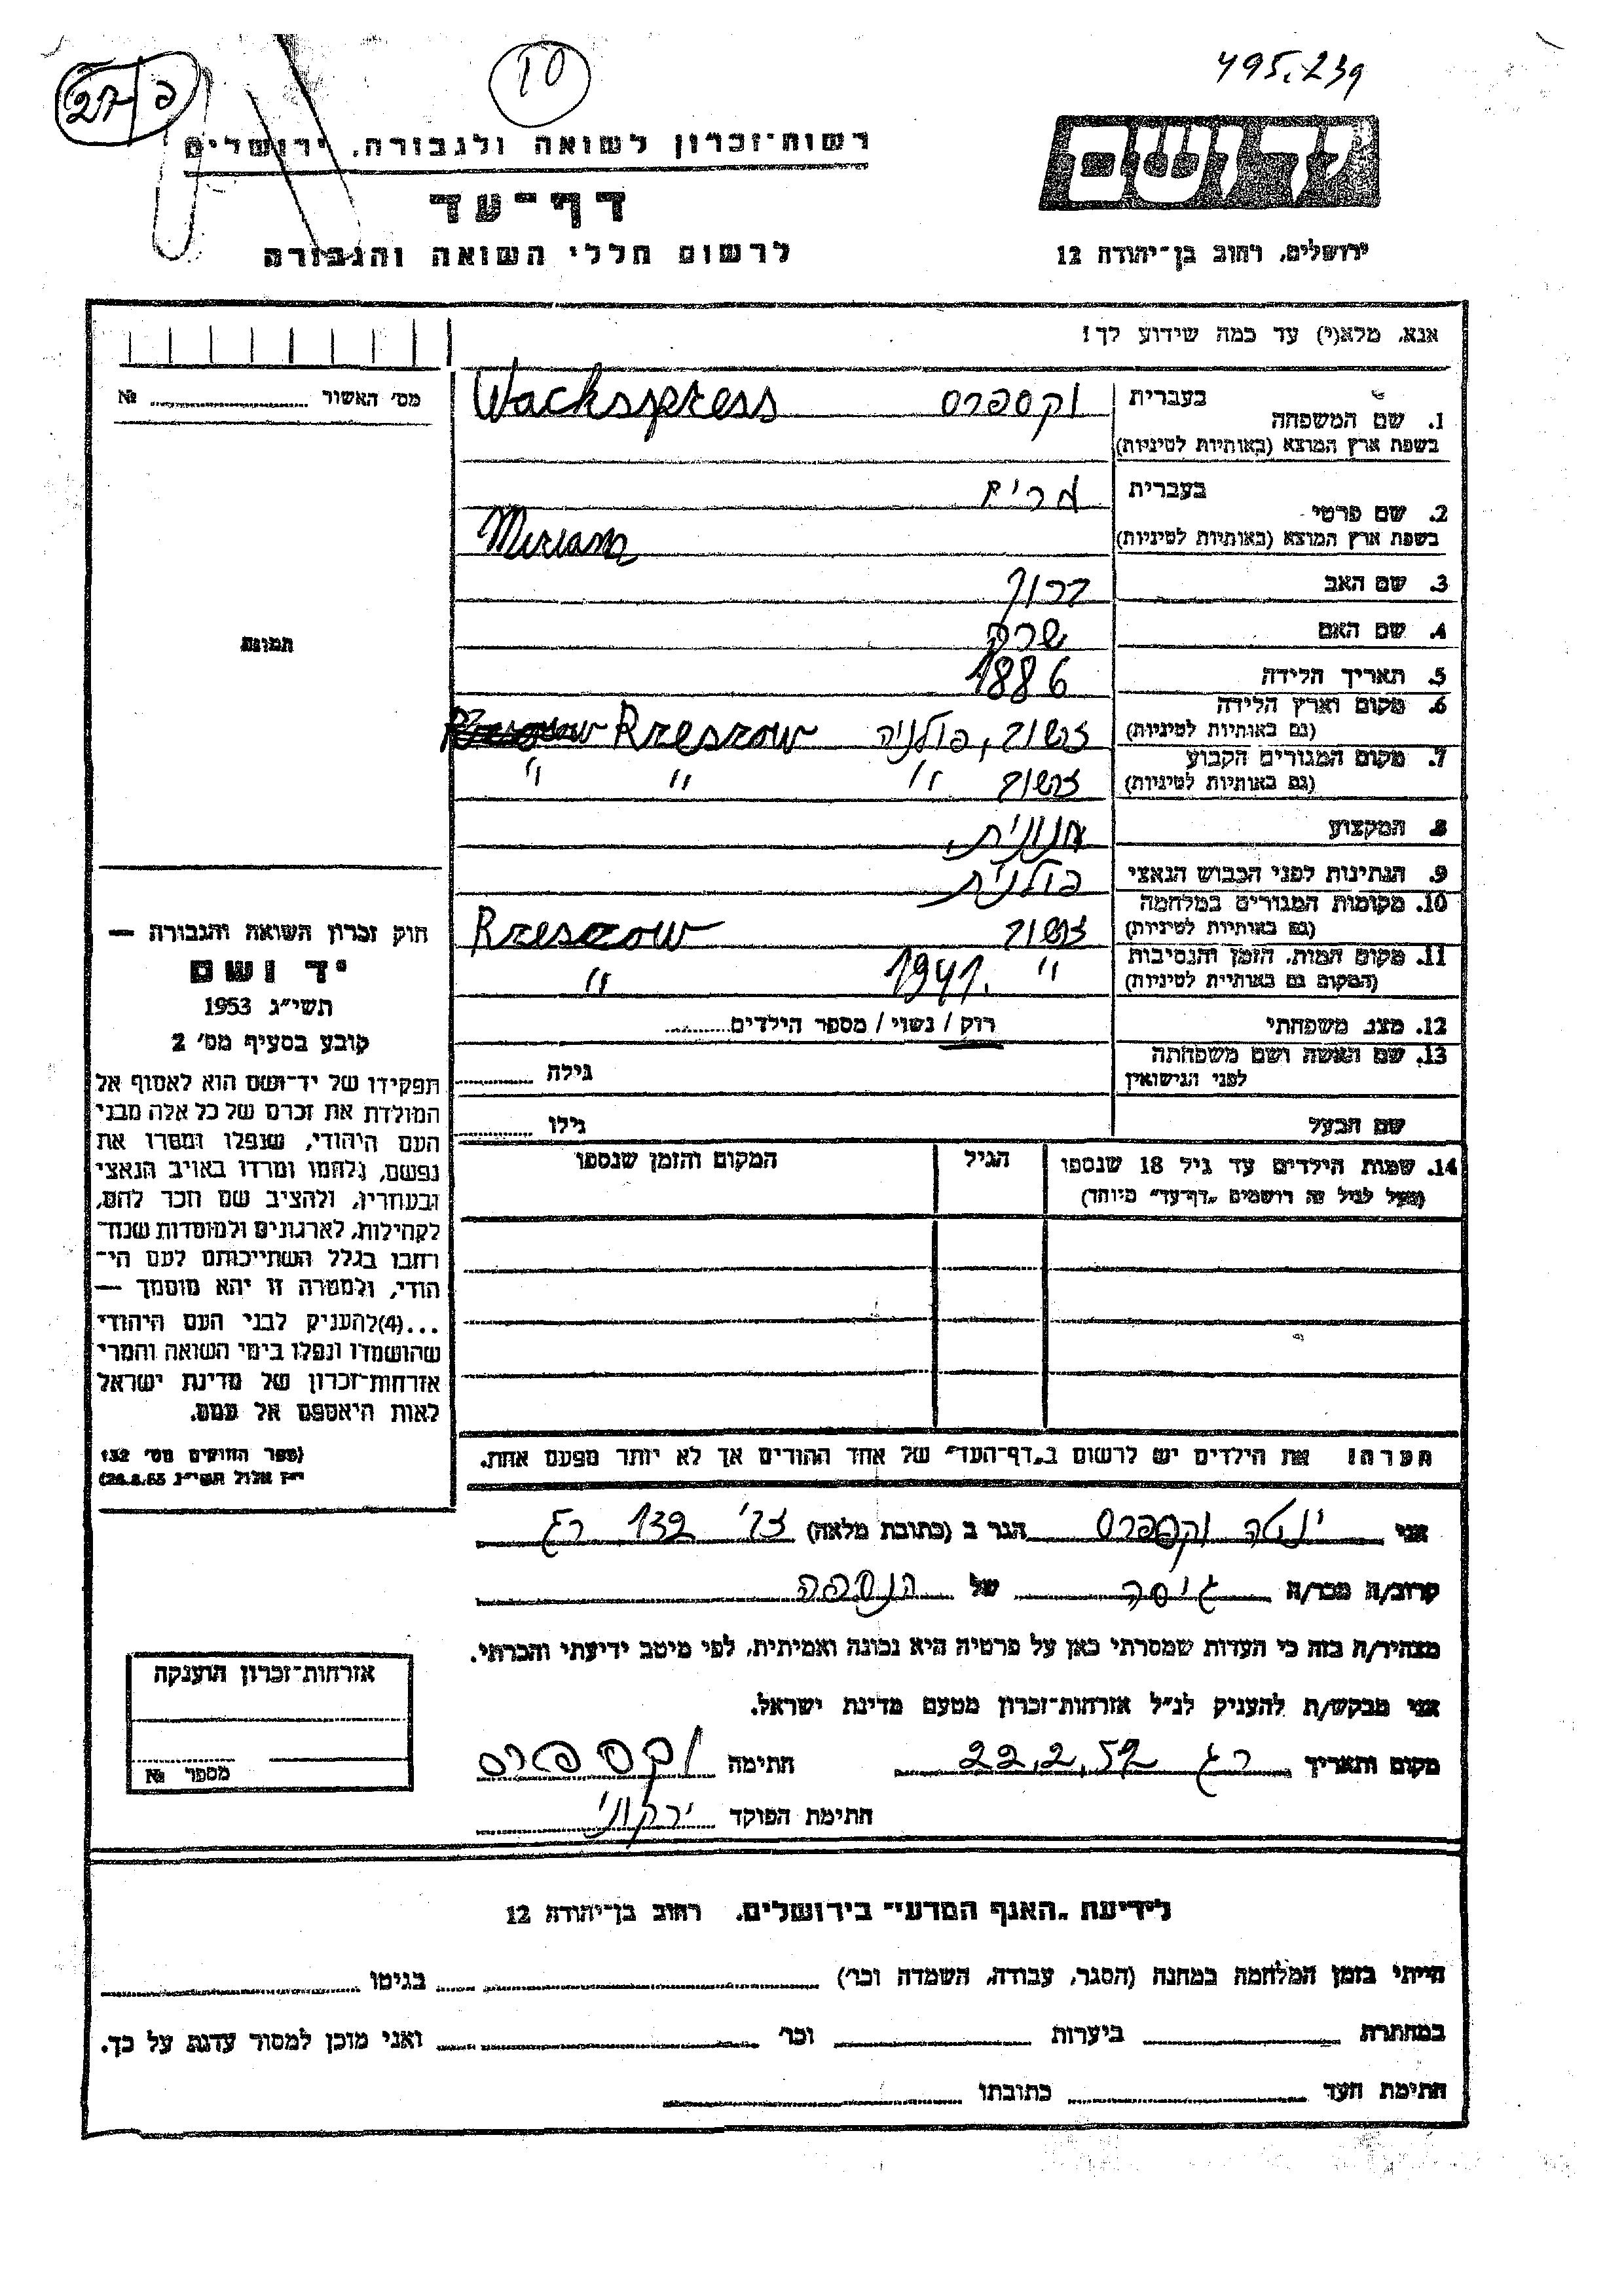 495.239
10
27 פ
רשות־זכרון לשואה ולגבורה, ירושלים
דף־עד
לרשום חללי השואה והגבורה
ידושם
ירושלים, רחוב בן־יהודה 12
אנא, מלא(י) עד כמה שידוע לך!
מס׳ האשור №
1. שם המשפחה בעברית וקספרס Wachspress
בשפת ארץ המוצא (באותיות לטיניות)
2. שם פרטי בעברית מרים
בשפת ארץ המוצא (באותיות לטיניות) Miriam
3. שם האב ברוך
4. שם האם שרה
5. תאריך הלידה 1886
6. מקום וארץ הלידה (גם באותיות לטיניות) זשוב, פולניה Rzeszow
7. מקום המגורים הקבוע (גם באותיות לטיניות) זשוב " " "
8. המקצוע חנונית
9. הנתינות לפני הכבוש הנאצי פולנית
10. מקומות המגורים במלחמה (גם באותיות לטיניות) זשוב Rzeszow
11. מקום המות, הזמן והנסיבות (המקום גם באותיות לטיניות) " 1941. "
12. מצב משפחתי רוק / נשוי / מספר הילדים
13. שם האשה ושם משפחתה לפני הנישואין גילה
שם הבעל גילו
14. שמות הילדים עד גיל 18 שנספו הגיל המקום והזמן שנספו
(מעל לגיל זה רושמים „דף־עד" מיוחד)
תמונה
חוק זכרון השואה והגבורה —
יד ושם
תשי״ג 1953
קובע בסעיף מס׳ 2
תפקידו של יד־ושם הוא לאסוף אל
המולדת את זכרם של כל אלה מבני
העם היהודי, שנפלו ומסרו את
נפשם, נלחמו ומרדו באויב הנאצי
ובעוזריו, ולהציב שם וזכר להם,
לקהילות, לארגונים ולמוסדות שנח־
רבו בגלל השתייכותם לעם הי־
הודי, ולמטרה זו יהא מוסמך —
...(4)להעניק לבני העם היהודי
שהושמדו ונפלו בימי השואה והמרי
אזרחות־זכרון של מדינת ישראל
לאות היאספם אל עמם.
(ספר החוקים מס׳ 132
י״ז אלול תשי״ג 28.8.53)
הערה! את הילדים יש לרשום ב„דף־העד" של אחד ההורים אך לא יותר מפעם אחת.
אני יוטה וקספרס הגר ב (כתובת מלאה) 139 רג
קרוב/ה מכר/ה גיסה של הנספה
מצהיר/ה בזה כי העדות שמסרתי כאן על פרטיה היא נכונה ואמיתית, לפי מיטב ידיעתי והכרתי.
אני מבקש/ת להעניק לנ״ל אזרחות־זכרון מטעם מדינת ישראל.
מקום ותאריך רג 22.2.57 חתימה וקספרס
חתימת הפוקד ירקוני
אזרחות־זכרון הוענקה
מספר №
לידיעת „האגף המדעי" בירושלים, רחוב בן־יהודה 12
הייתי בזמן המלחמה במחנה (הסגר, עבודה, השמדה וכר׳) בגיטו
במחתרת ביערות וכר׳ ואני מוכן למסור עדות על כך.
חתימת העד כתובתו